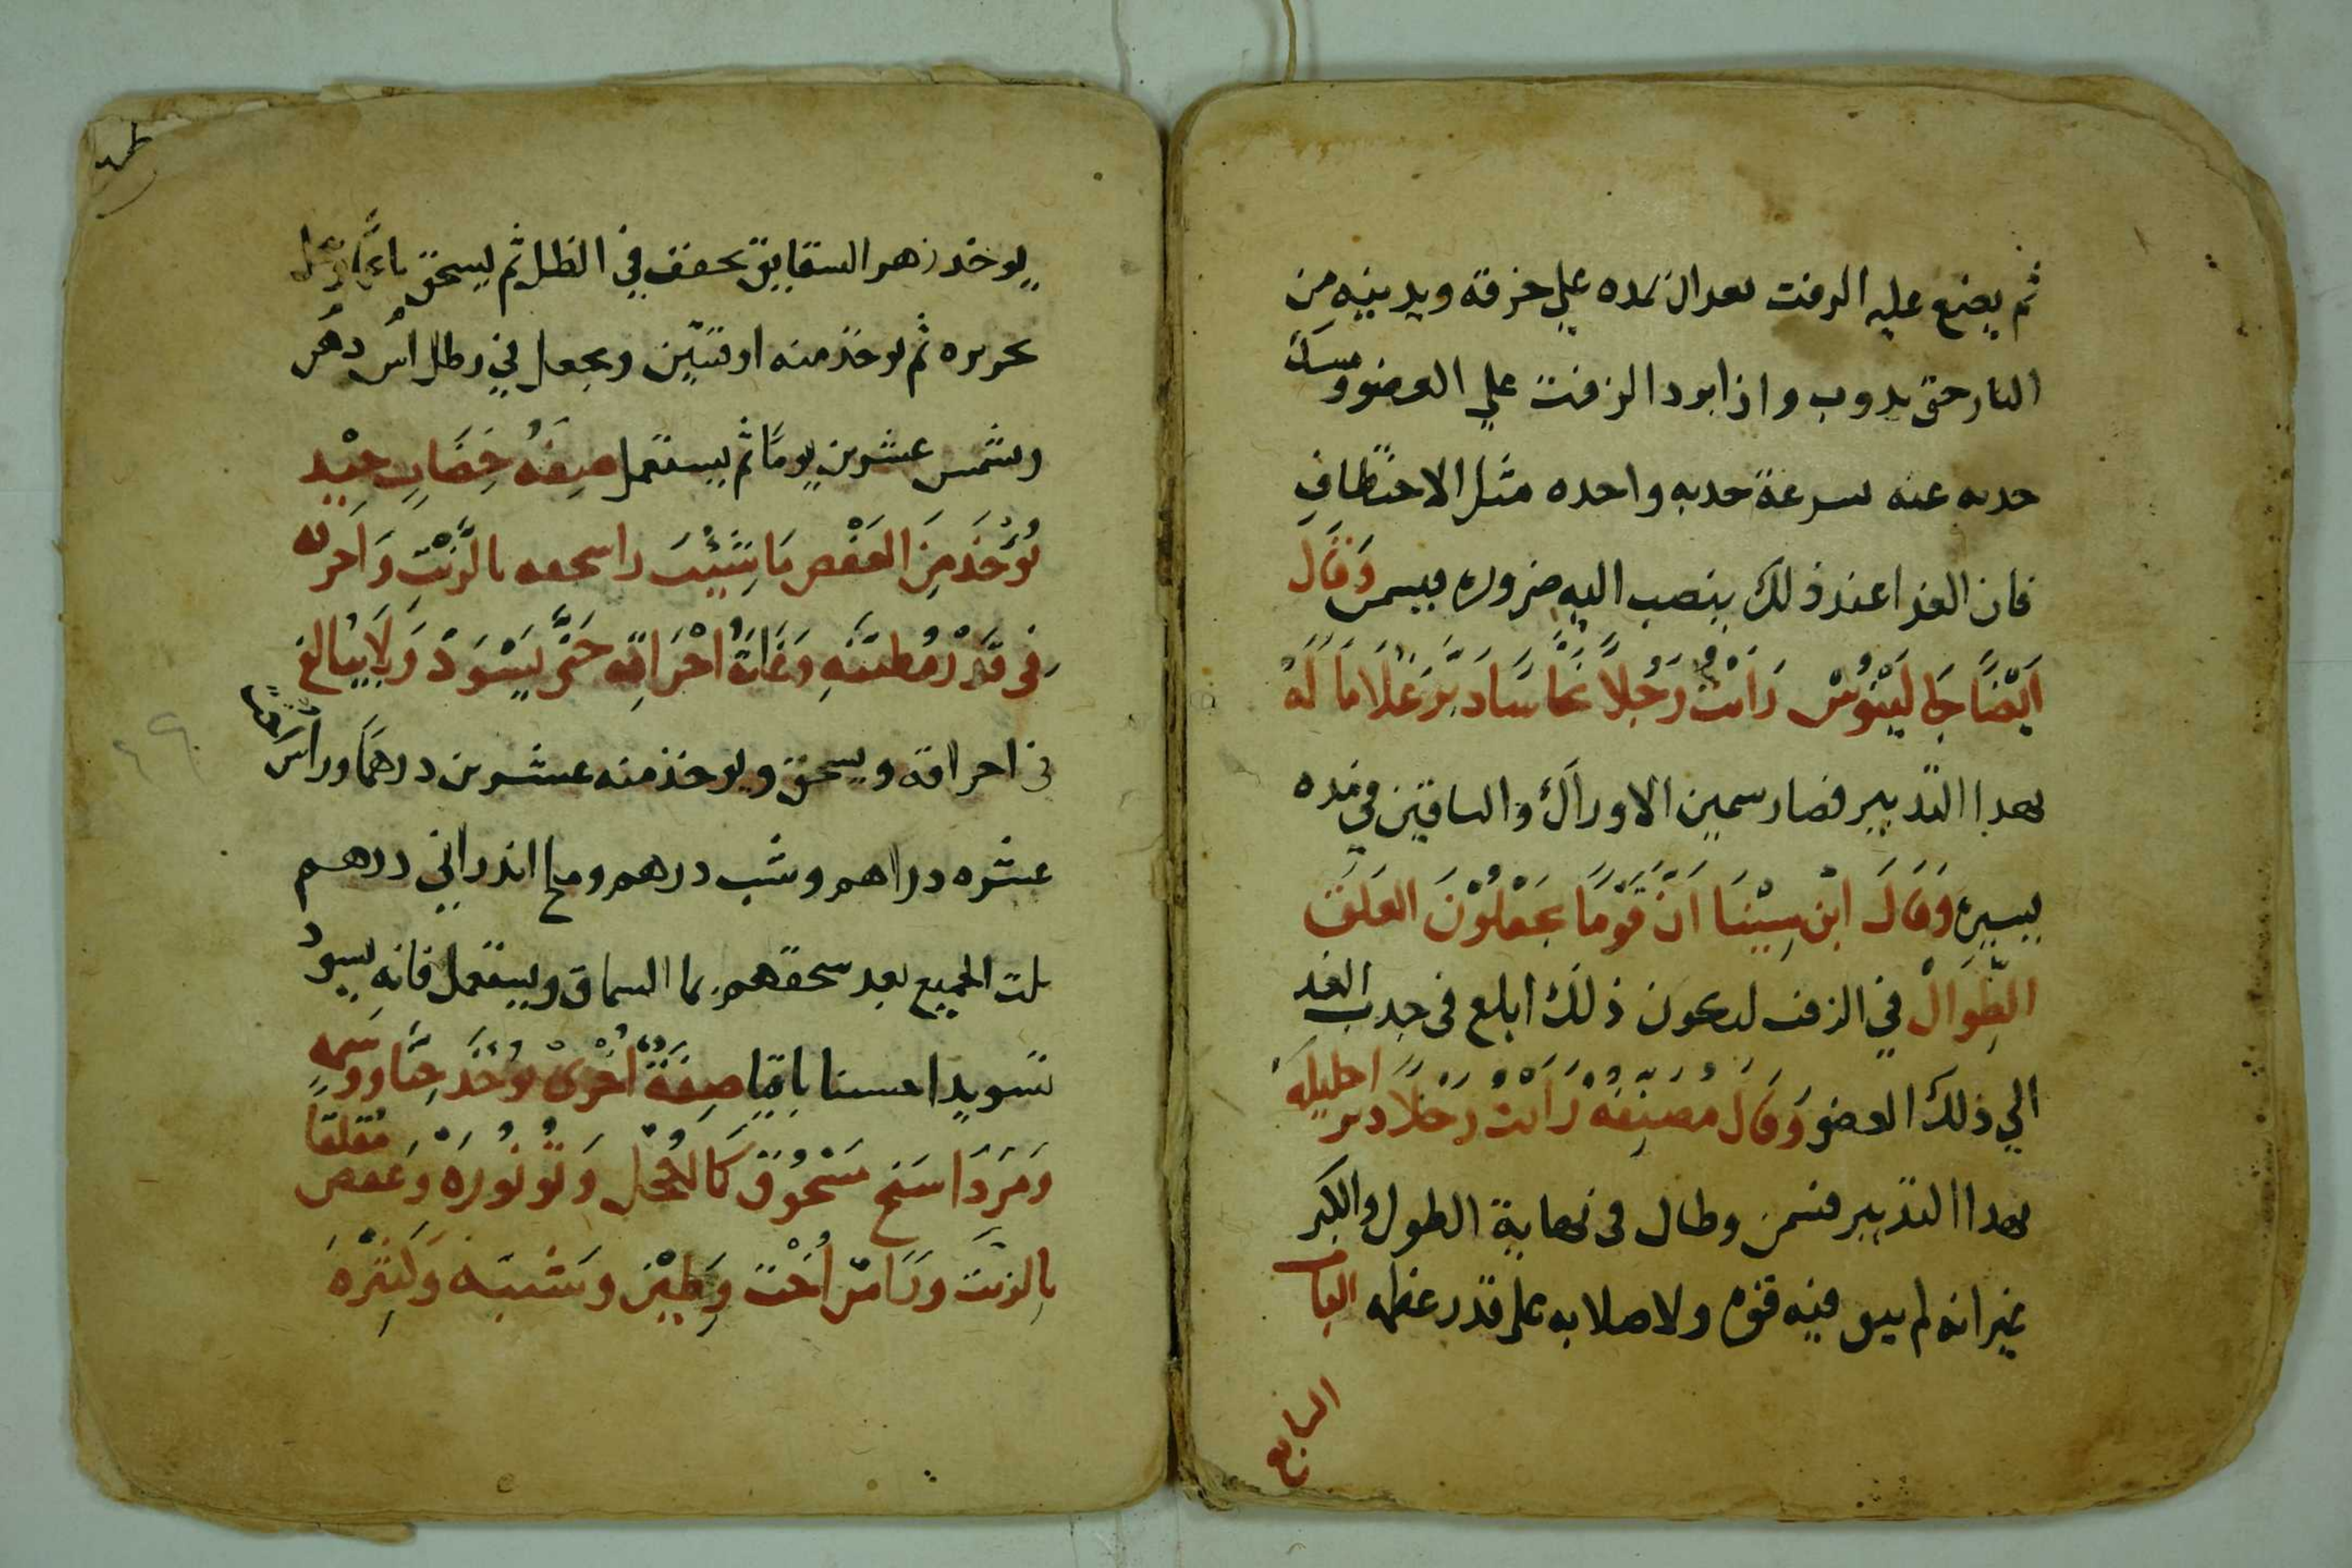 ثم يضع عليه الزفت بعد ان تمده علي خرقة ويدنيه من
النار حتى يدوب واذا برد الزفت علي العضو ومسك
جدبه عنه بسرعة جدبه واحده مثل الاختطاف
فان الغدا عند ذلك ينصب اليه ضروره فيسمن وَقَالَ
اَيْضًا جَالِيَنُوسْ رَاَيْتُ رَجُلاً نخاسًا دَبَّرَ غُلَامًا لَهُ
بهدا التدبير فصار سمين الاوراك والساقين في مده
يسيره وَقَالَ ابْن سِيْنَا اَنَّ قَوْمًا يَجْعَلُوْنَ العَلَقَ
الطِّوَالْ في الزفت ليكون ذلك ابلغ فى جدب الغدا
الي ذلك العضو وَقَالَ مُصَنِفُهُ رَاَيْتُ رَجُلاً دبر احليله
بهدا التدبير فسمن وطال فى نهاية الطول والكبر
غير انه لم يبق فيه قوه ولا صلابه على قدر عظمه الباب
السابع
يوخد زهر الشقايق يجفف في الظل ثم يسحق
بحريره ثم يوخذ منه اوقيتين ويجعل في رطل دهن اس
ويشمس عشرين يومًا ثم يستعمل صِفَهُ خِضَابٍ جيْدٍ
يُوْخَذ مِنَ العَفْصِ مَا شِيْتَ واسحقه بالزَّيْتِ وَاَحرقه
فِى قِدْرٍ مُطَيَّنَهٍ وَغَايَةُ اِحْرَاقِه حَتَّى يَسْوَدْ وَلَا يُبَالغ
فى احراقه ويسحق ويوخذ منه عشرين درهمًا
عشره دراهم وشب درهم وملح اندراني درهم
يلت الجميع بعد سحقهم بما السماق ويستعمل فانه يسود
تسويدا حسنا باقيًا صِفَةٌ اُخْرَى يُوْخَذ حِنَّا ووَسمهٍ
وَمَرَدَاسَنج مَسْحُوْق كَالكُحْل وَنُوْرَهْ وَعَفص مُقلقًا
بالزيت وَطِيْن وَشَبّه وَكَثِيْرَهْ